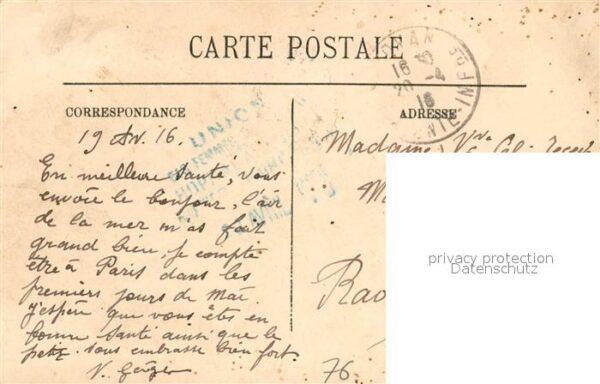 CARTE POSTALE
CORRESPONDANCE
ADRESSE
19 Av. 16.
En meilleure santé, vous
envoie le bonjour, l'air
de la mer m'as fait
grand bien, je compte
être à Paris dans les
premiers jours de Mai.
J'espère que vous êtes en
bonne santé ainsi que le
petit. Vous embrasse bien fort.
V.
UNION
16
20 -4
16
Madame Vve
Rao
76
privacy protection
Datenschutz